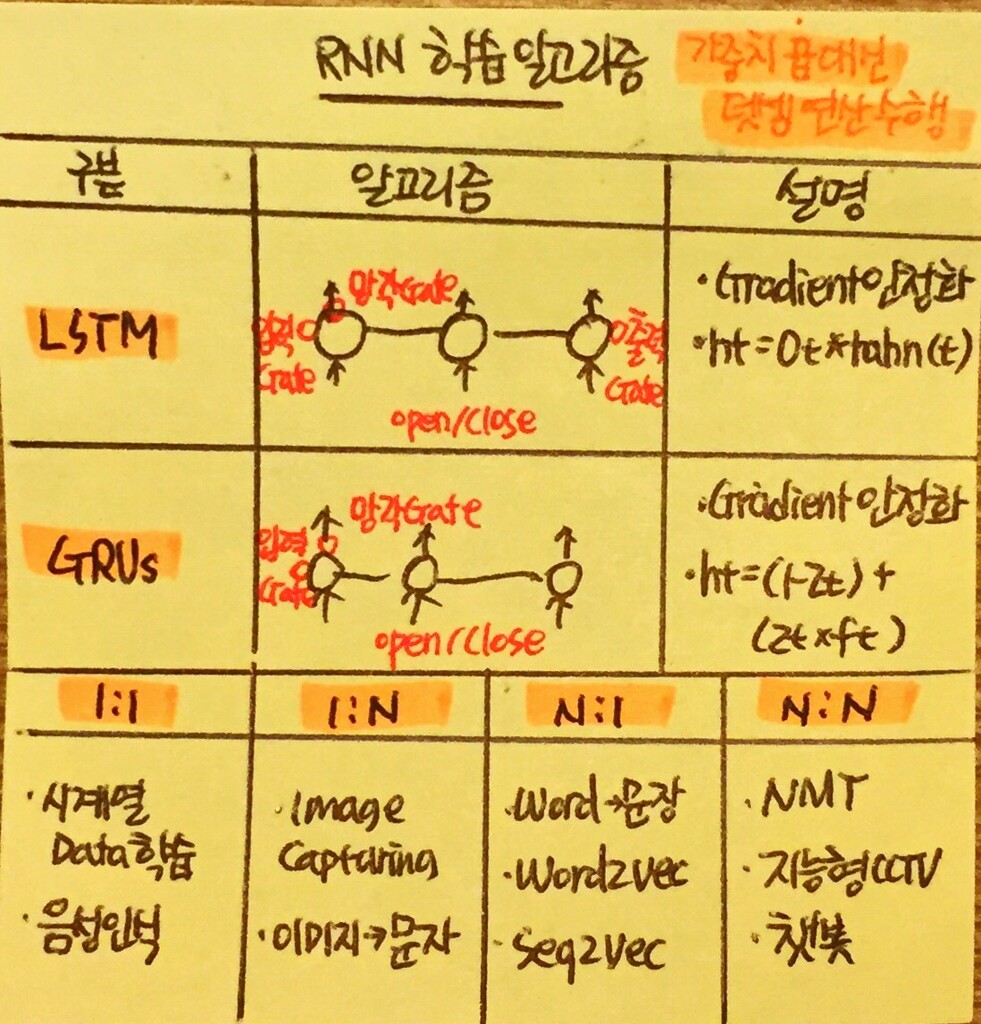 RNN 학습 알고리즘
가중치 곱대신
덧셈 연산 수행
구분 알고리즘 설명
LSTM
망각Gate
입력
Gate
출력
Gate
open/close
·Gradient안정화
·ht=Ot*tahn(t)
GRUs
망각Gate
입력
Gate
open/close
·Gradient안정화
·ht=(1-Zt)+
(Zt×ft)
1:1 1:N N:1 N:N
·시계열
Data학습
·음성인식
·Image
Capturing
·이미지→문자
·Word→문장
·Word2Vec
·Seq2Vec
·NMT
·지능형CCTV
·챗봇